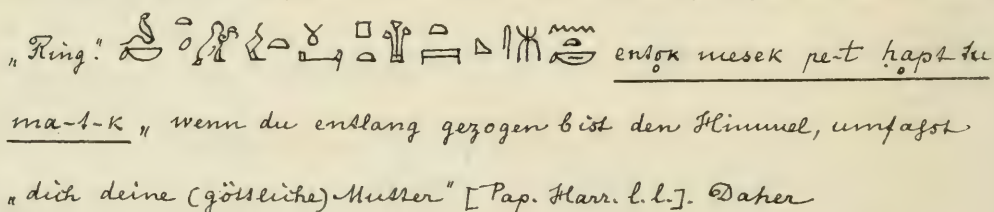 „Ring“. entok mesek pe-t ḥapt tu
ma-t-k „wenn du entlang gezogen bist den Himmel, umfasst
„dich deine (göttliche) Mutter“ [Pap. Harr. l. l.]. Daher